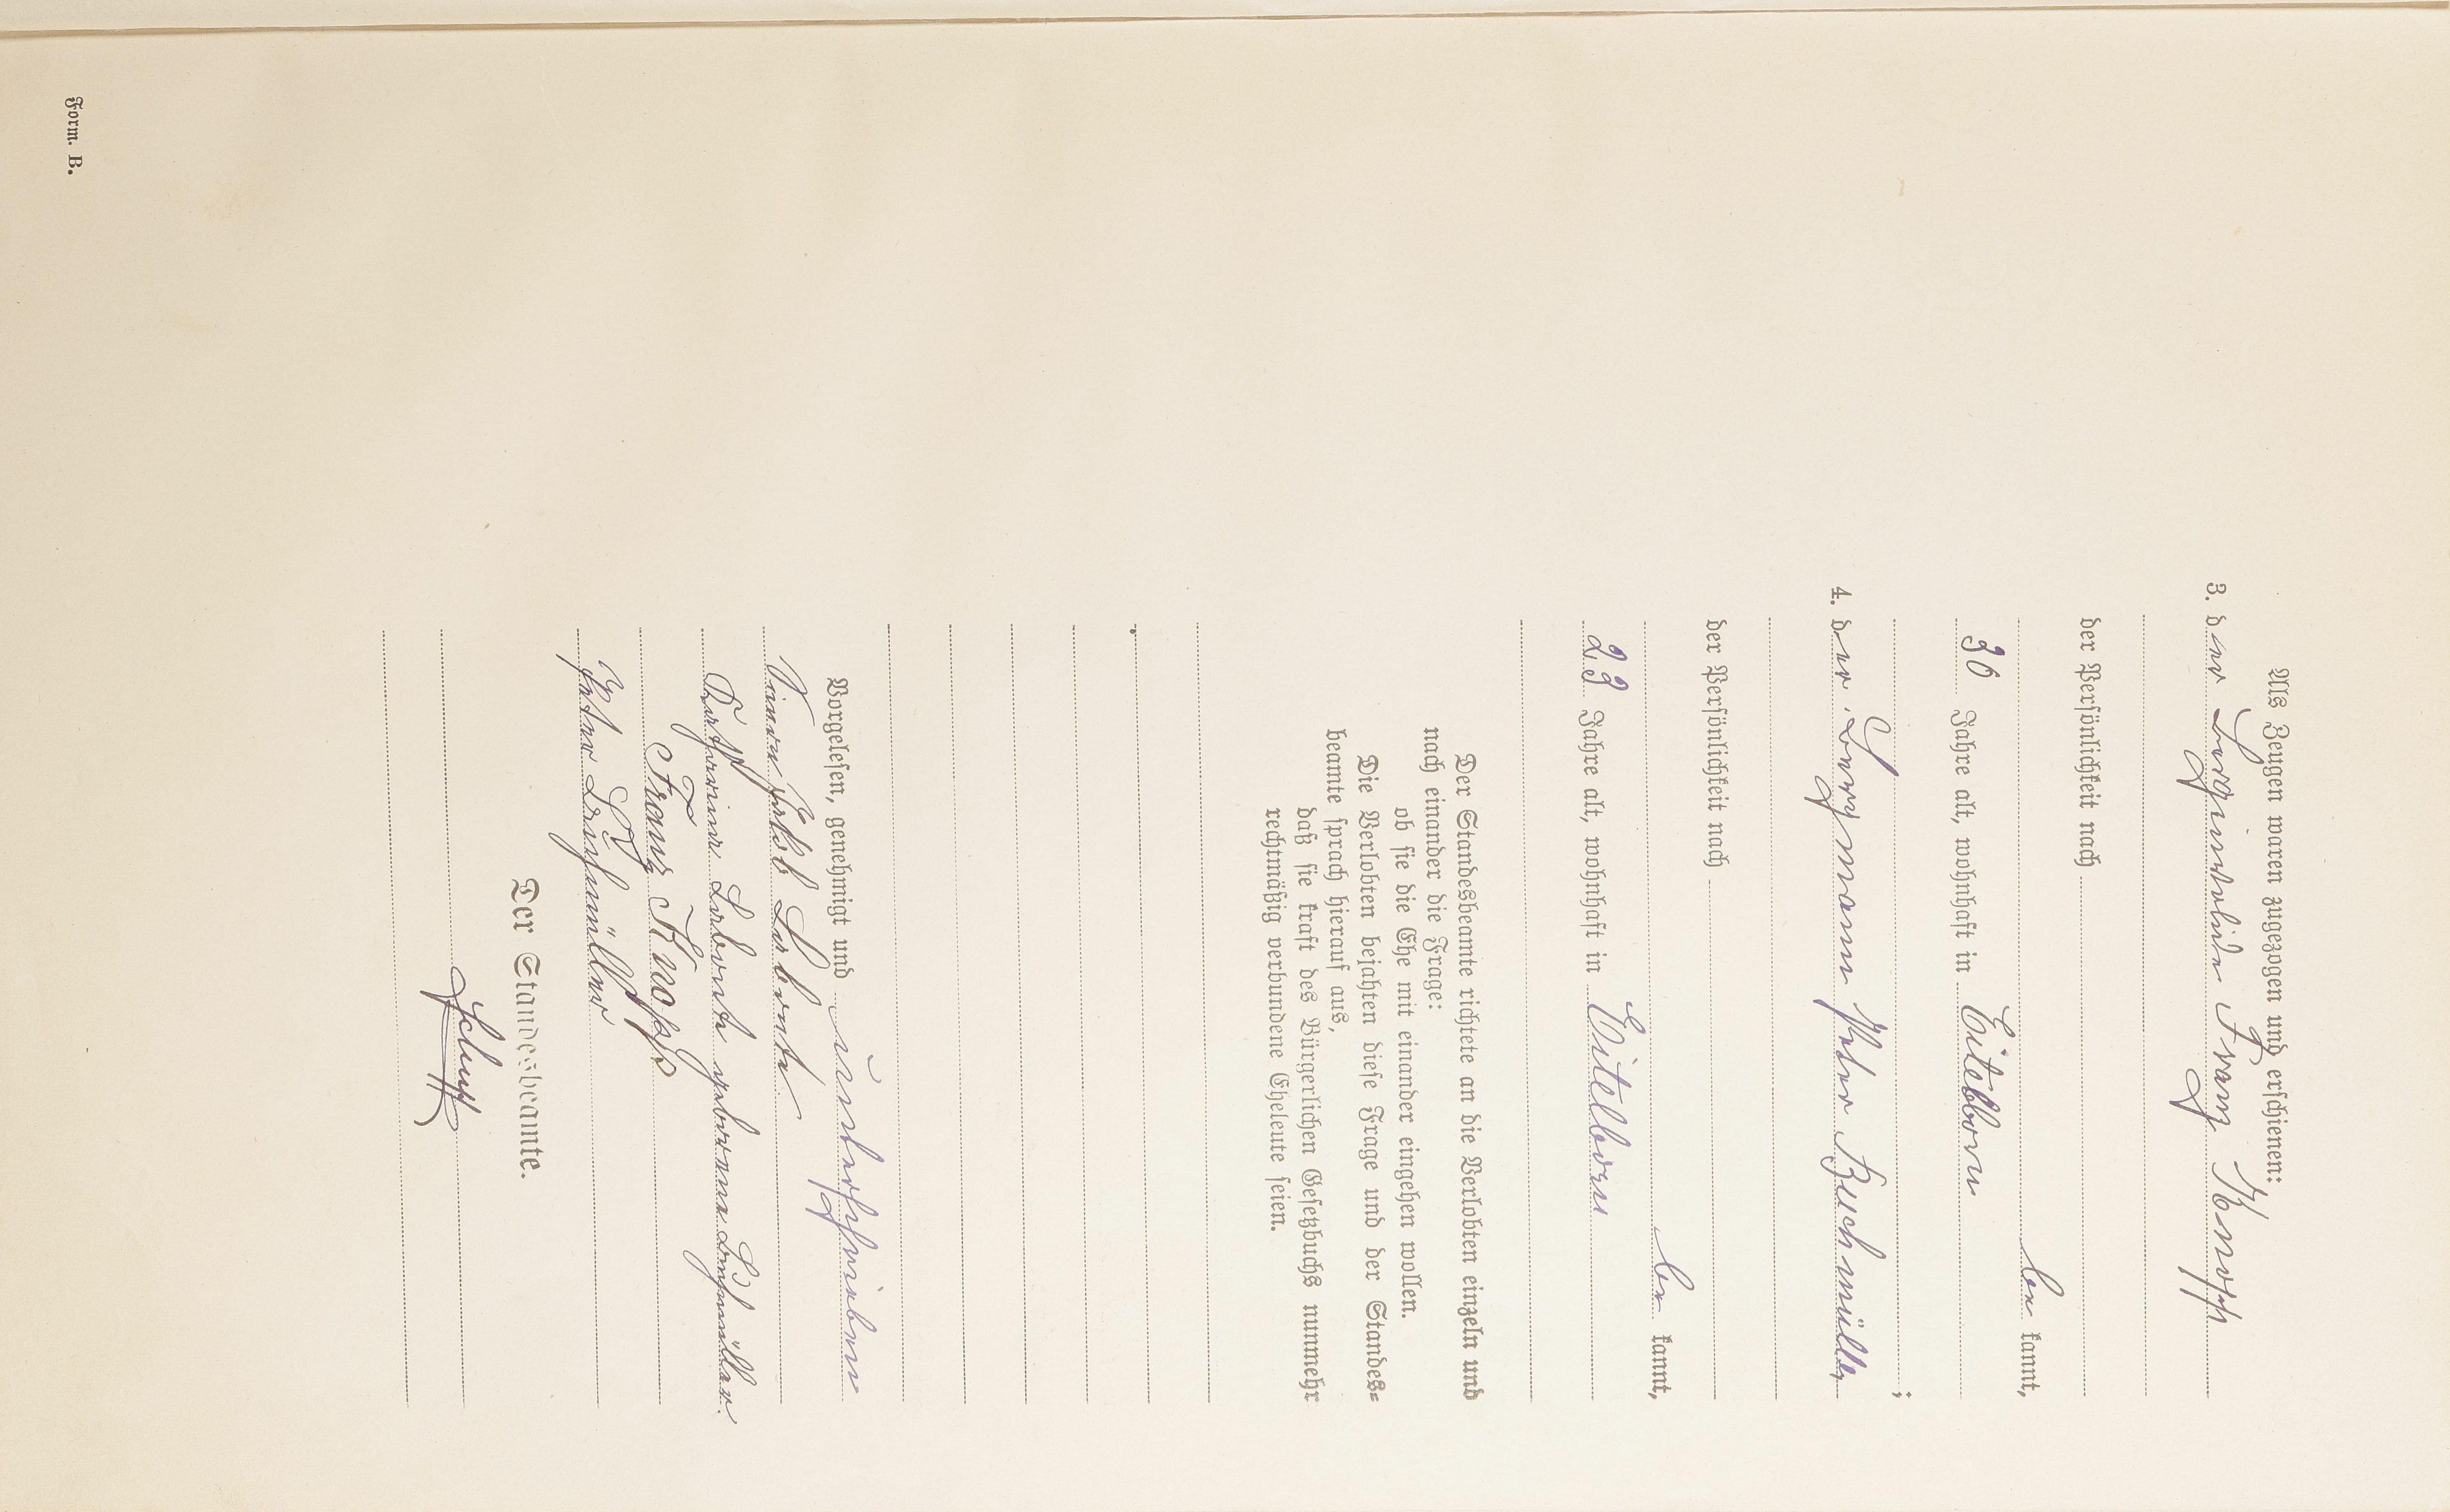 Als Zeugen waren zugezogen und erschienen:
3. der Berginvalide Franz Knopp
der Persönlichkeit nach
bekannt,
36 Jahre alt, wohnhaft in Eitelborn
;
4. der Bergmann Peter Buchmüller
der Persönlichkeit nach
bekannt,
23 Jahre alt, wohnhaft in Eitelborn
Der Standesbeamte richtete an die Verlobten einzeln und
nach einander die Frage:
ob sie die Ehe mit einander eingehen wollen.
Die Verlobten bejahten diese Frage und der Standes-
beamte sprach hierauf aus,
daß sie kraft des Bürgerlichen Gesetzbuchs nunmehr
rechtmäßig verbundene Eheleute seien.
Vorgelesen, genehmigt und unterschrieben
Jakob
Katharina geborene Buchmüller.
Franz Knopp
Peter Buchmüller
Der Standesbeamte.
Form. B.